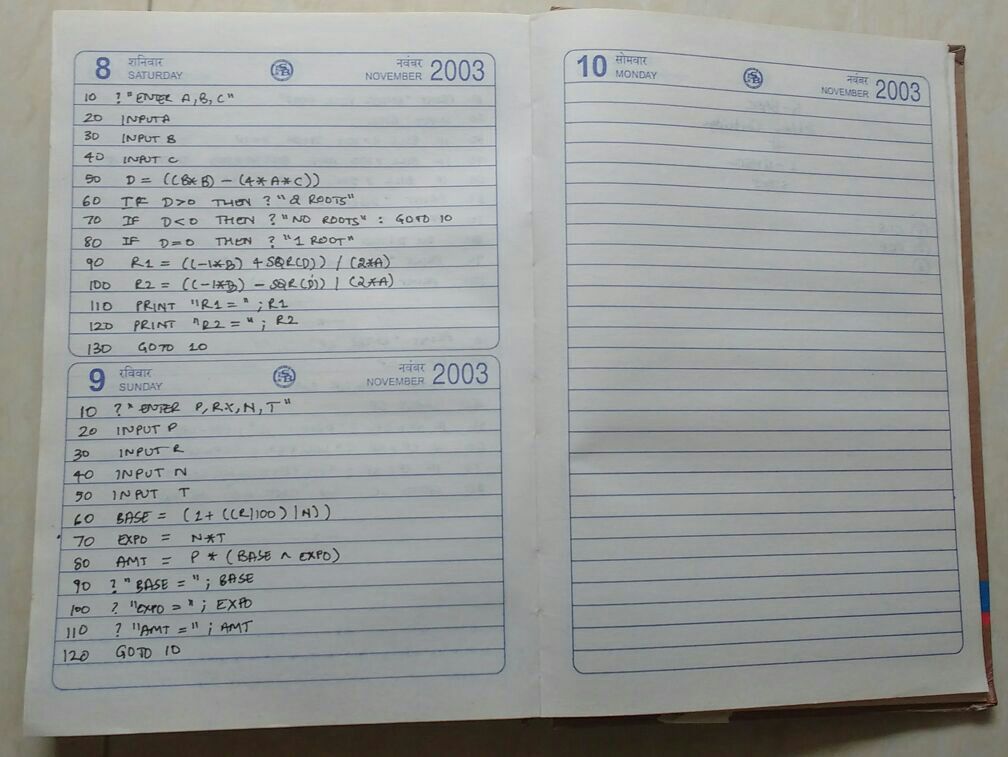 8 शनिवार SATURDAY नवंबर NOVEMBER 2003
10 ? "ENTER A, B, C"
20 INPUT A
30 INPUT B
40 INPUT C
50 D = ((B*B) - (4*A*C))
60 IF D>0 THEN ? "2 ROOTS"
70 IF D<0 THEN ? "NO ROOTS" : GOTO 10
80 IF D=0 THEN ? "1 ROOT"
90 R1 = ((-1*B) + SQR(D)) / (2*A)
100 R2 = ((-1*B) - SQR(D)) / (2*A)
110 PRINT "R1 = " ; R1
120 PRINT "R2 = " ; R2
130 GOTO 10
9 रविवार SUNDAY नवंबर NOVEMBER 2003
10 ? " ENTER P, R%, N, T "
20 INPUT P
30 INPUT R
40 INPUT N
50 INPUT T
60 BASE = (1 + ((R/100) / N))
70 EXPO = N*T
80 AMT = P * (BASE ^ EXPO)
90 ? "BASE = " ; BASE
100 ? "EXPO = " ; EXPO
110 ? "AMT = " ; AMT
120 GOTO 10
10 सोमवार MONDAY नवंबर NOVEMBER 2003